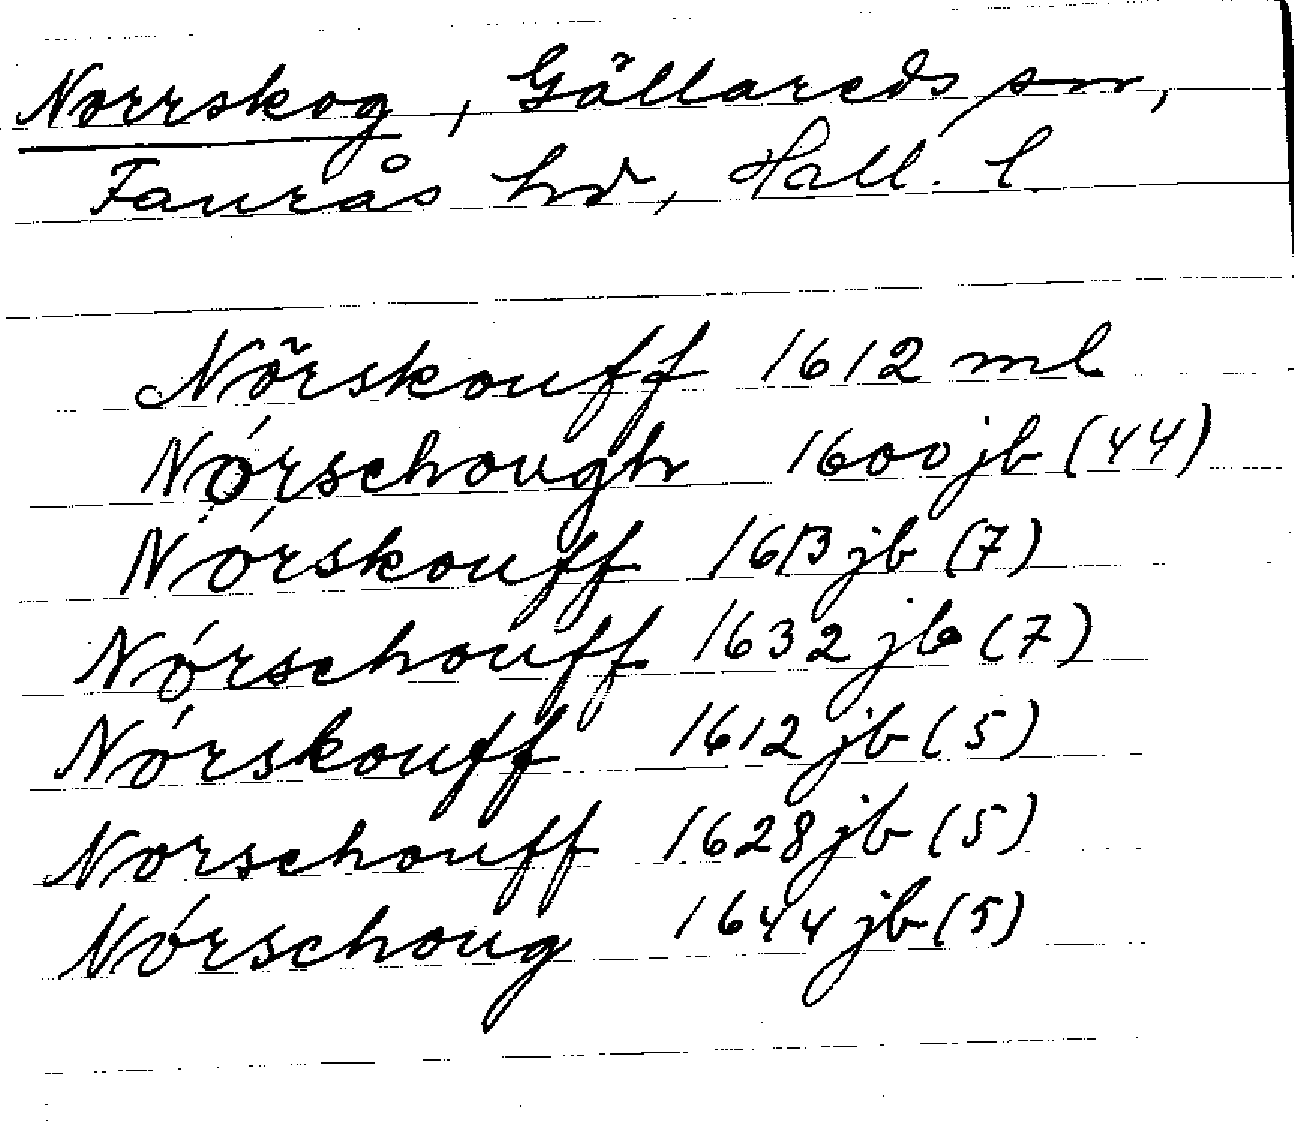 Norrskog, Gällareds sn,
Faurås hd, Hall. l.
Nõrskouff 1612 ml
Nórschough 1600 jb (44)
Nórskouff 1613 jb (7)
Nórschouff 1632 jb (7)
Nórskouff 1612 jb (5)
Norschouff 1628 jb (5)
Nórschoug 1644 jb (5)